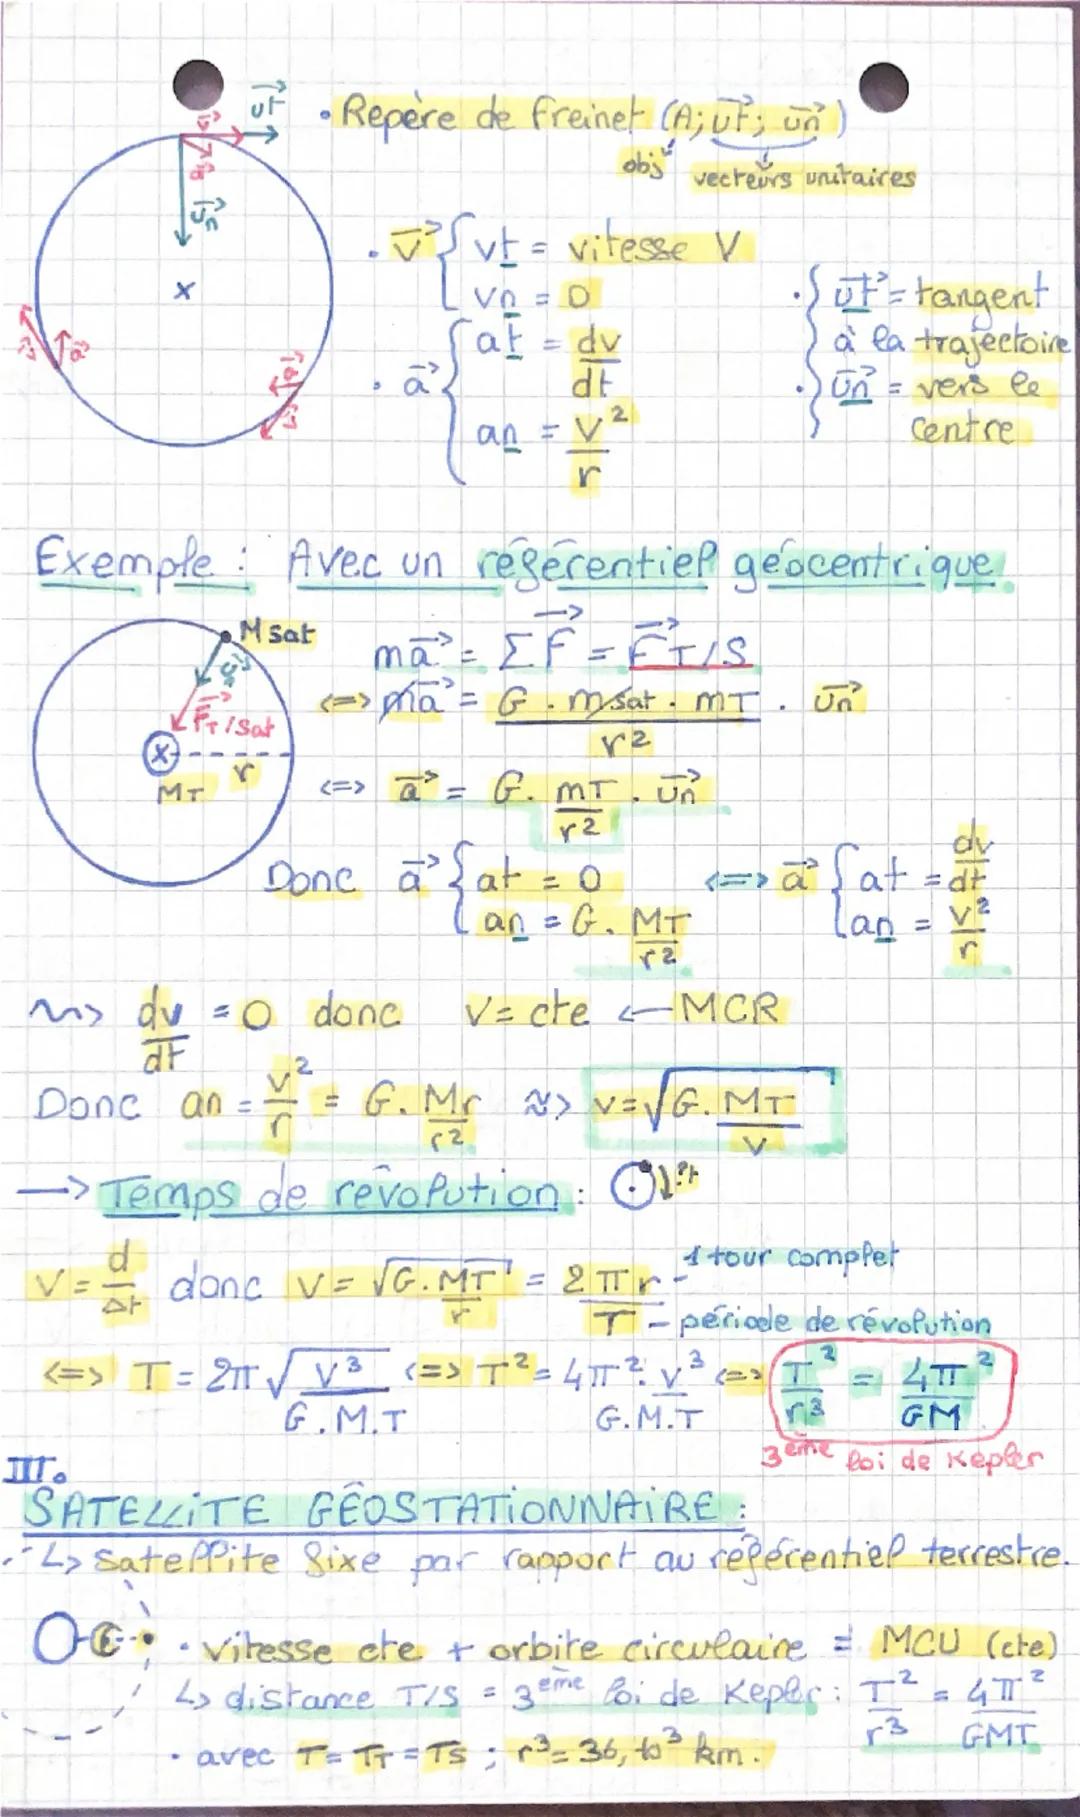 • Repère de freinet (A; ut; un)
obj vecteurs unitaires
ut
v
a
un
• v { vt = vitesse V
vn = 0
• a { at = dv/dt
an = v²/r
• ut = tangent
à la trajectoire
• un = vers le
centre
x
v a
a
v
Exemple : Avec un référentiel géocentrique
M sat
u
FT/sat
x
r
MT
ma = ΣF = FT/S
<=> ma = G . msat . mT / r² . un
<=> a = G. mT/r² . un
Donc a { at = 0 <=> a { at = dv/dt
an = G. MT/r² an = v²/r
~> dv/dt = 0 donc V = cte <— MCR
Donc an = v²/r = G. Mr/r² ≈> v=√G. MT/v
—> Temps de révolution : ?t
V = d/Δt donc V = √G.MT/r = 2πr/T - 1 tour complet
- période de révolution
<=> T = 2π √v³/G.M.T <=> T² = 4π². v³/G.M.T <=> T²/r³ = 4π²/GM
3ème loi de Kepler
III.
SATELLITE GÉOSTATIONNAIRE :
↳ satellite fixe par rapport au référentiel terrestre.
• vitesse cte + orbite circulaire = MCU (cte)
↳ distance T/S = 3ème loi de Kepler : T²/r³ = 4π²/GMT
• avec T = TT = TS ; r³ = 36,10³ km.